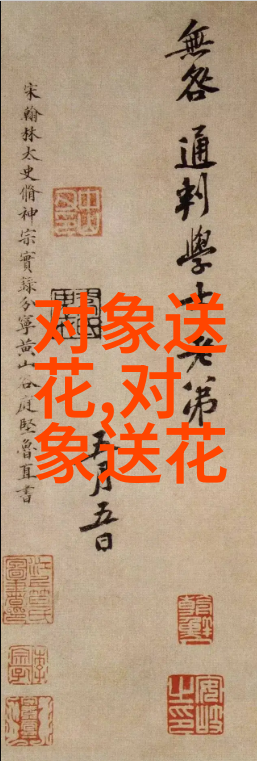 無咎通判學士老弟
五月五日
宋翰林太史脩神宗實錄分寧黃山谷庭堅魯直書
对象送
花,对
象送花